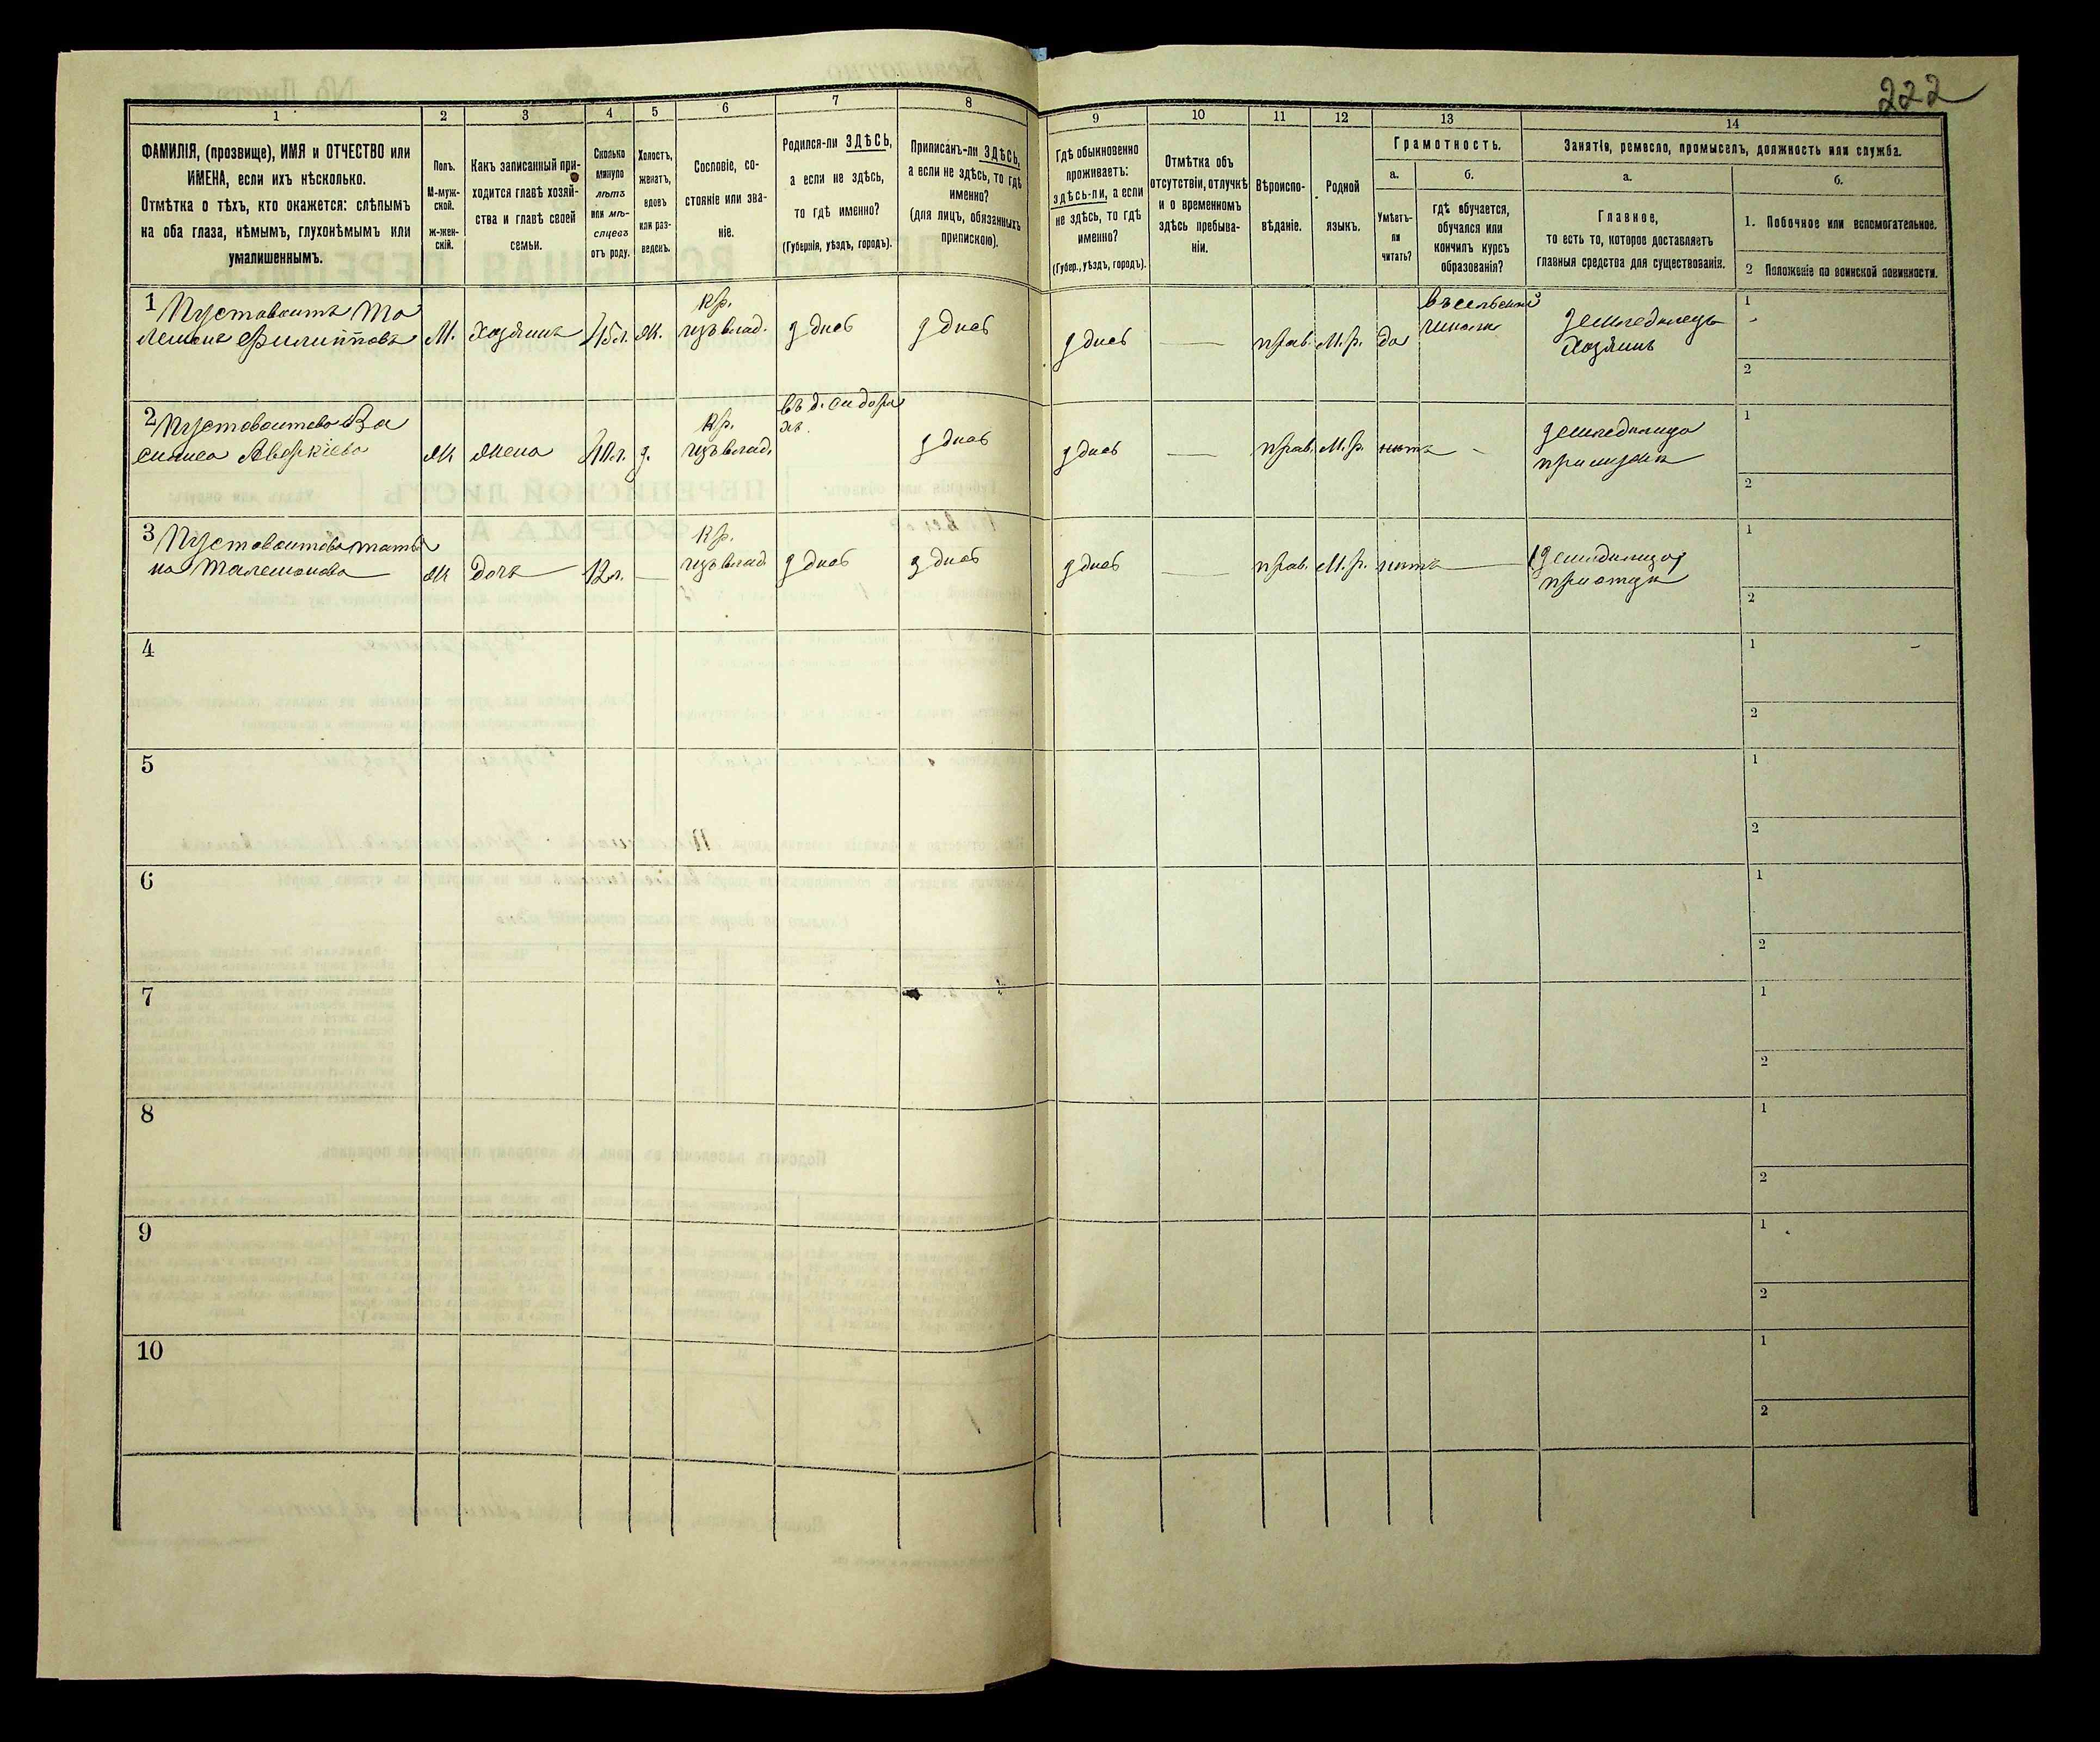 222
1
2
3
4
5
6
7
8
9
10
11
12
13
14
ФАМИЛІЯ, (прозвище), ИМЯ и ОТЧЕСТВО или
ИМЕНА, если ихъ нѣсколько.
Отмѣтка о тѣхъ, кто окажется: слѣпымъ
на оба глаза, нѣмымъ, глухонѣмымъ или
умалишеннымъ.
Полъ.
М-муж-
ской.
Ж-жен-
скій.
Какъ записанный при-
ходится главѣ хозяй-
ства и главѣ своей
семьи.
Сколько
минуло
лѣтъ
или мѣ-
сяцевъ
отъ роду.
Холостъ,
женатъ,
вдовъ
или раз-
веденъ.
Сословіе, со-
стояніе или зва-
ніе.
Родился-ли ЗДѢСЬ,
а если не здѣсь,
то гдѣ именно?
(Губернія, уѣздъ, городъ).
Приписанъ-ли ЗДѢСЬ,
а если не здѣсь, то гдѣ
именно?
(для лицъ, обязанныхъ
припискою).
Гдѣ обыкновенно
проживаетъ:
здѣсь-ли, а если
не здѣсь, то гдѣ
именно?
(Губер., уѣздъ, городъ).
Отмѣтка объ
отсутствіи, отлучкѣ
и о временномъ
здѣсь пребыва-
ніи.
Вѣроиспо-
вѣданіе.
Родной
языкъ.
Грамотность.
а.
Умѣетъ-
ли
читать?
б.
гдѣ обучается,
обучался или
кончилъ курсъ
образованія?
Занятіе, ремесло, промыселъ, должность или служба.
а.
Главное,
то есть то, которое доставляетъ
главныя средства для существованія.
б.
1. Побочное или вспомогательное.
2 Положеніе по воинской повинности.
1 Пустовоитъ Та
лемонъ Филипповъ
М.
Хозяинъ
45 л.
Ж.
Кр.
изъ влад.
здѣсь
здѣсь
здѣсь
—
прав.
М.р.
да
въ сельской
школѣ
Земледѣлецъ
Хозяинъ
1
2
2 Пустовоитова Ва
силиса Аверкіева
Ж
Жена
40 л.
з.
Кр.
изъ влад.
въ д. Сидора
хъ.
здѣсь
здѣсь
—
прав.
М.р.
нѣтъ
-
земледѣлица
при мужѣ
1
2
3 Пустовоитова Татья
на Талемонова
Ж
дочь
12 л.
—
Кр.
изъ влад
здѣсь
здѣсь
здѣсь
—
прав.
М.р.
нѣтъ
—
(земледѣлица)
при отцѣ
1
2
4
1
2
5
1
2
6
1
2
7
1
2
8
1
2
9
1
2
10
1
2